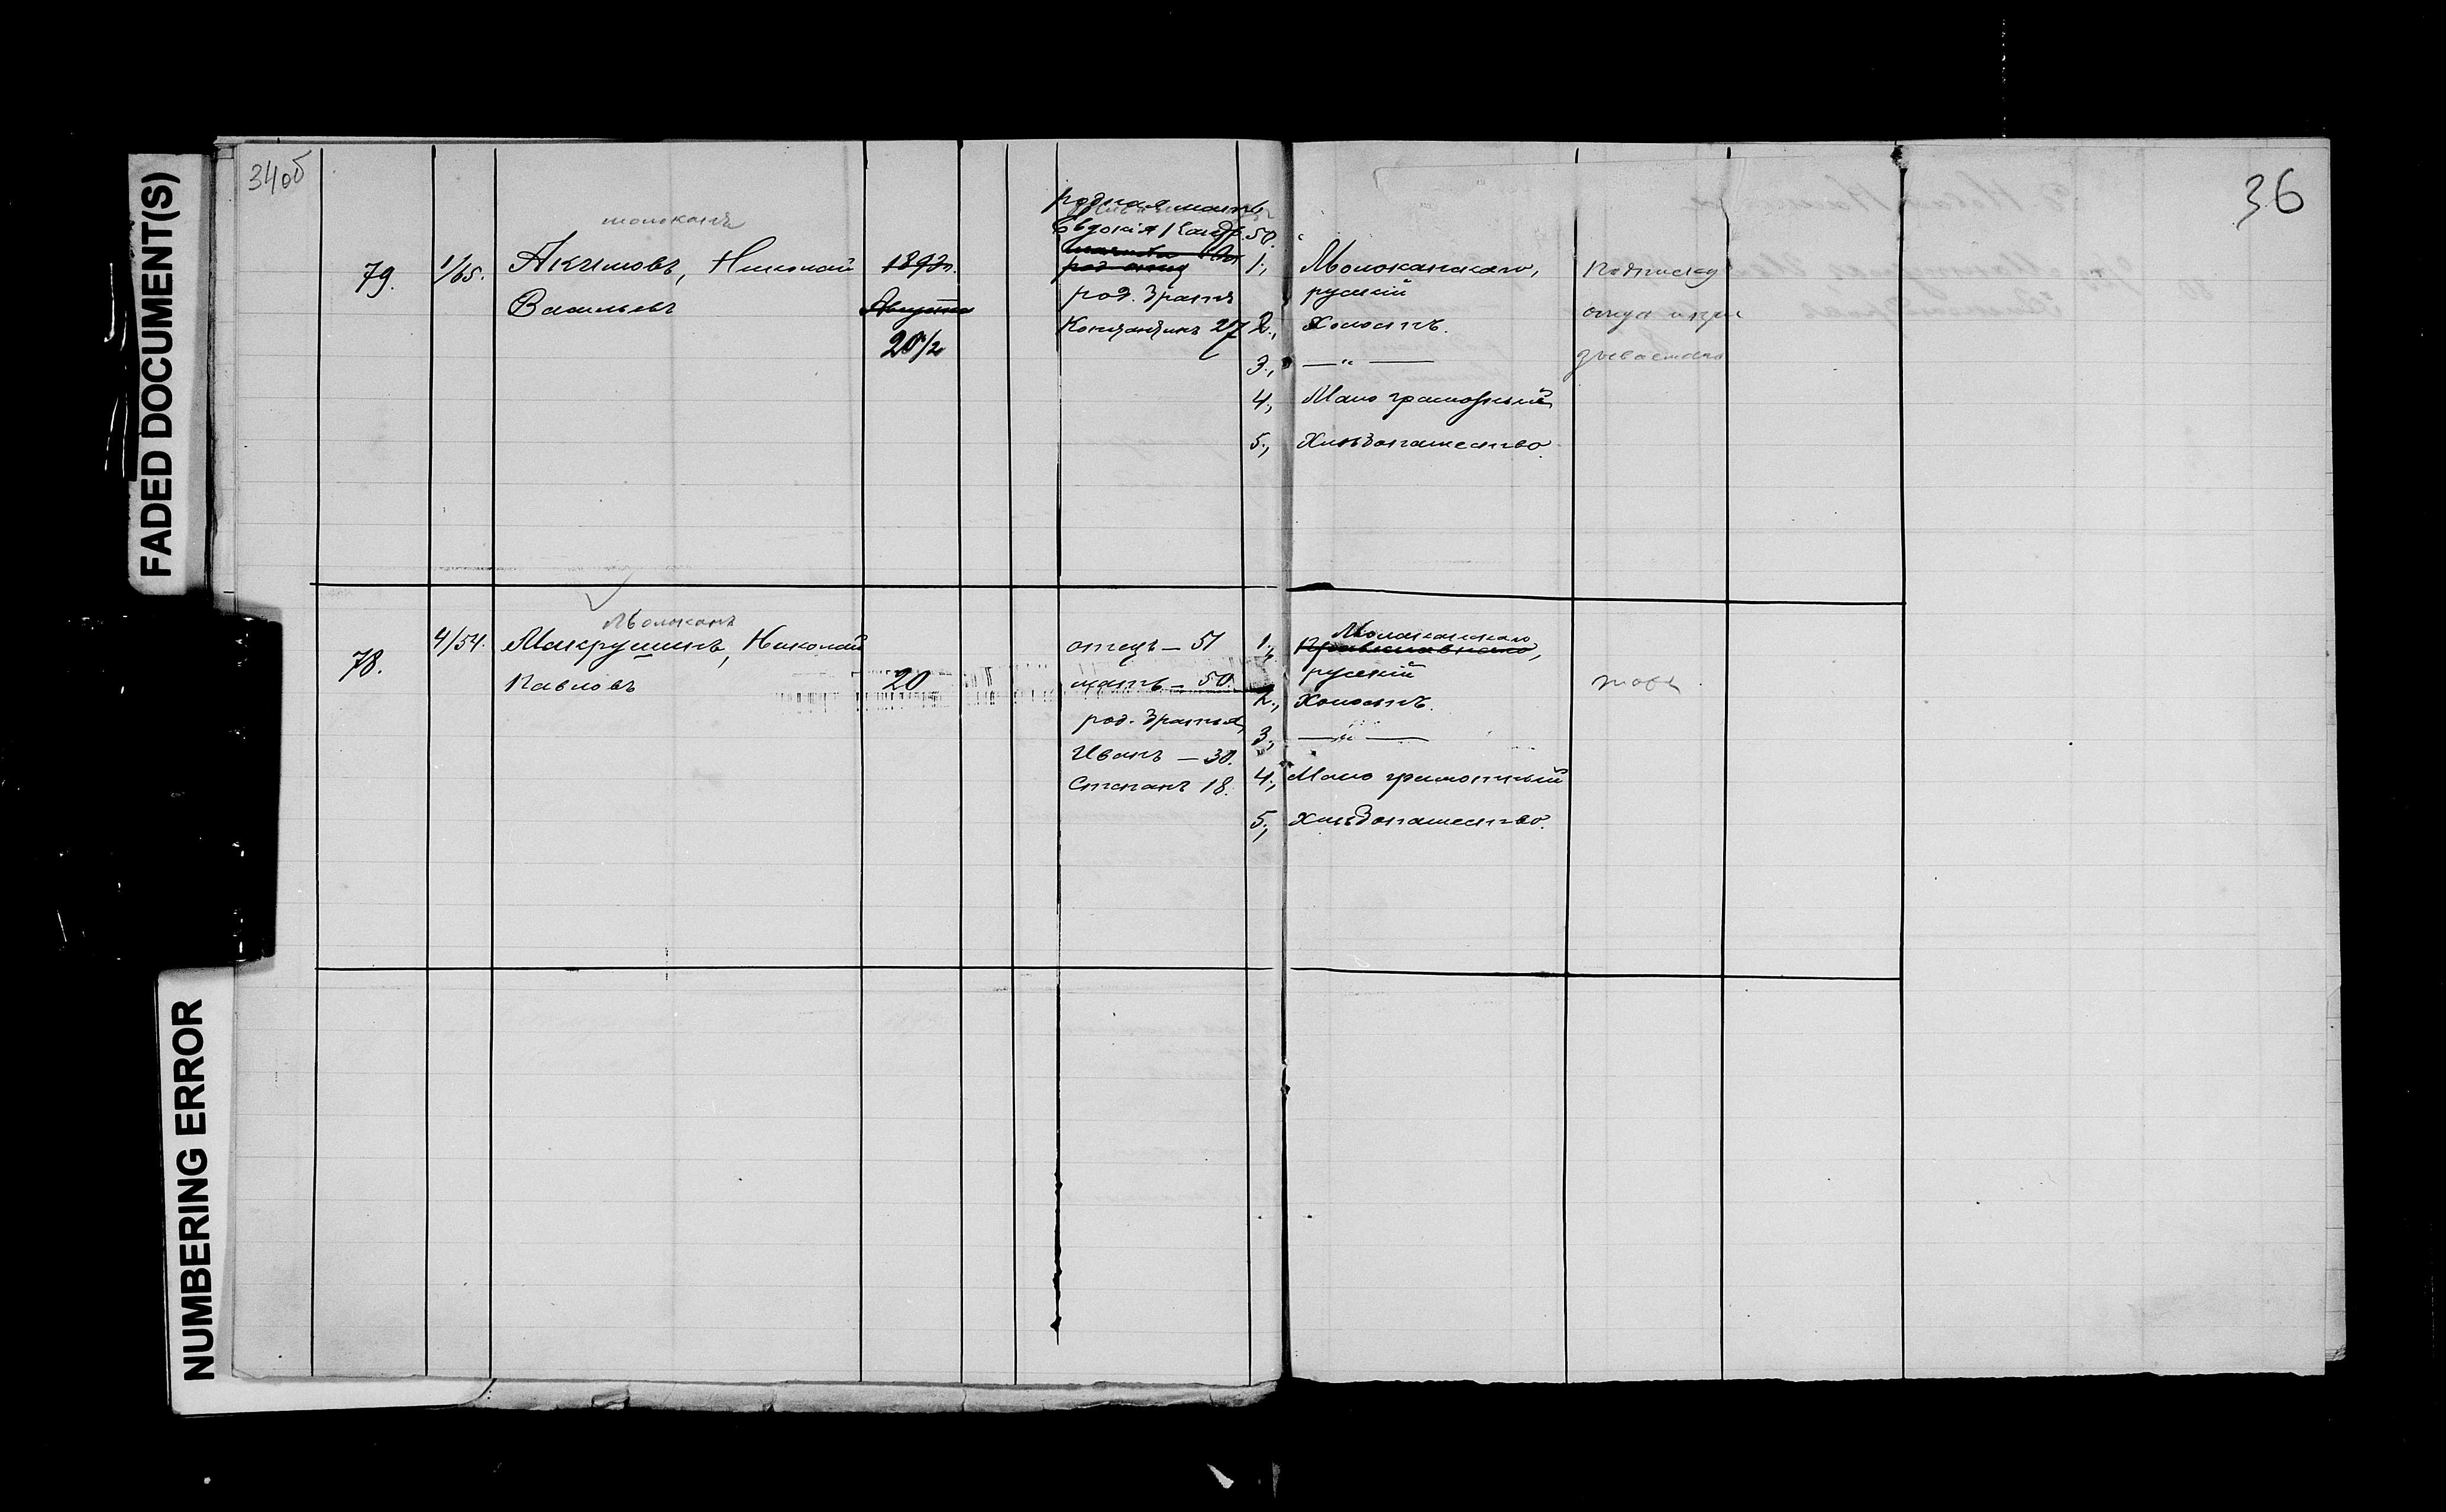 FADED DOCUMENT(S)
NUMBERING ERROR
34об
36
молоканъ
79. 1/65. Акимовъ, Николай
Васильевъ
1892г.
Августа
20 1/2
родная мать
Евдокія 50.
род.
род. братъ
Константинъ 27
1., Молоканскаго,
русскій
2., Холостъ.
3., — " —
4., Мало грамотный
5., Хлѣбопашество.
Подписку
Молоканъ
78. 4/54. Макрушинъ, Николай
Павловъ
20
отецъ — 51
мать — 50.
род. братья,
Иванъ — 30.
Степанъ 18.
1., Молоканскаго
Православнаго,
русскій
2., Холостъ.
3., — " —
4., Мало грамотный
5., Хлѣбопашество.